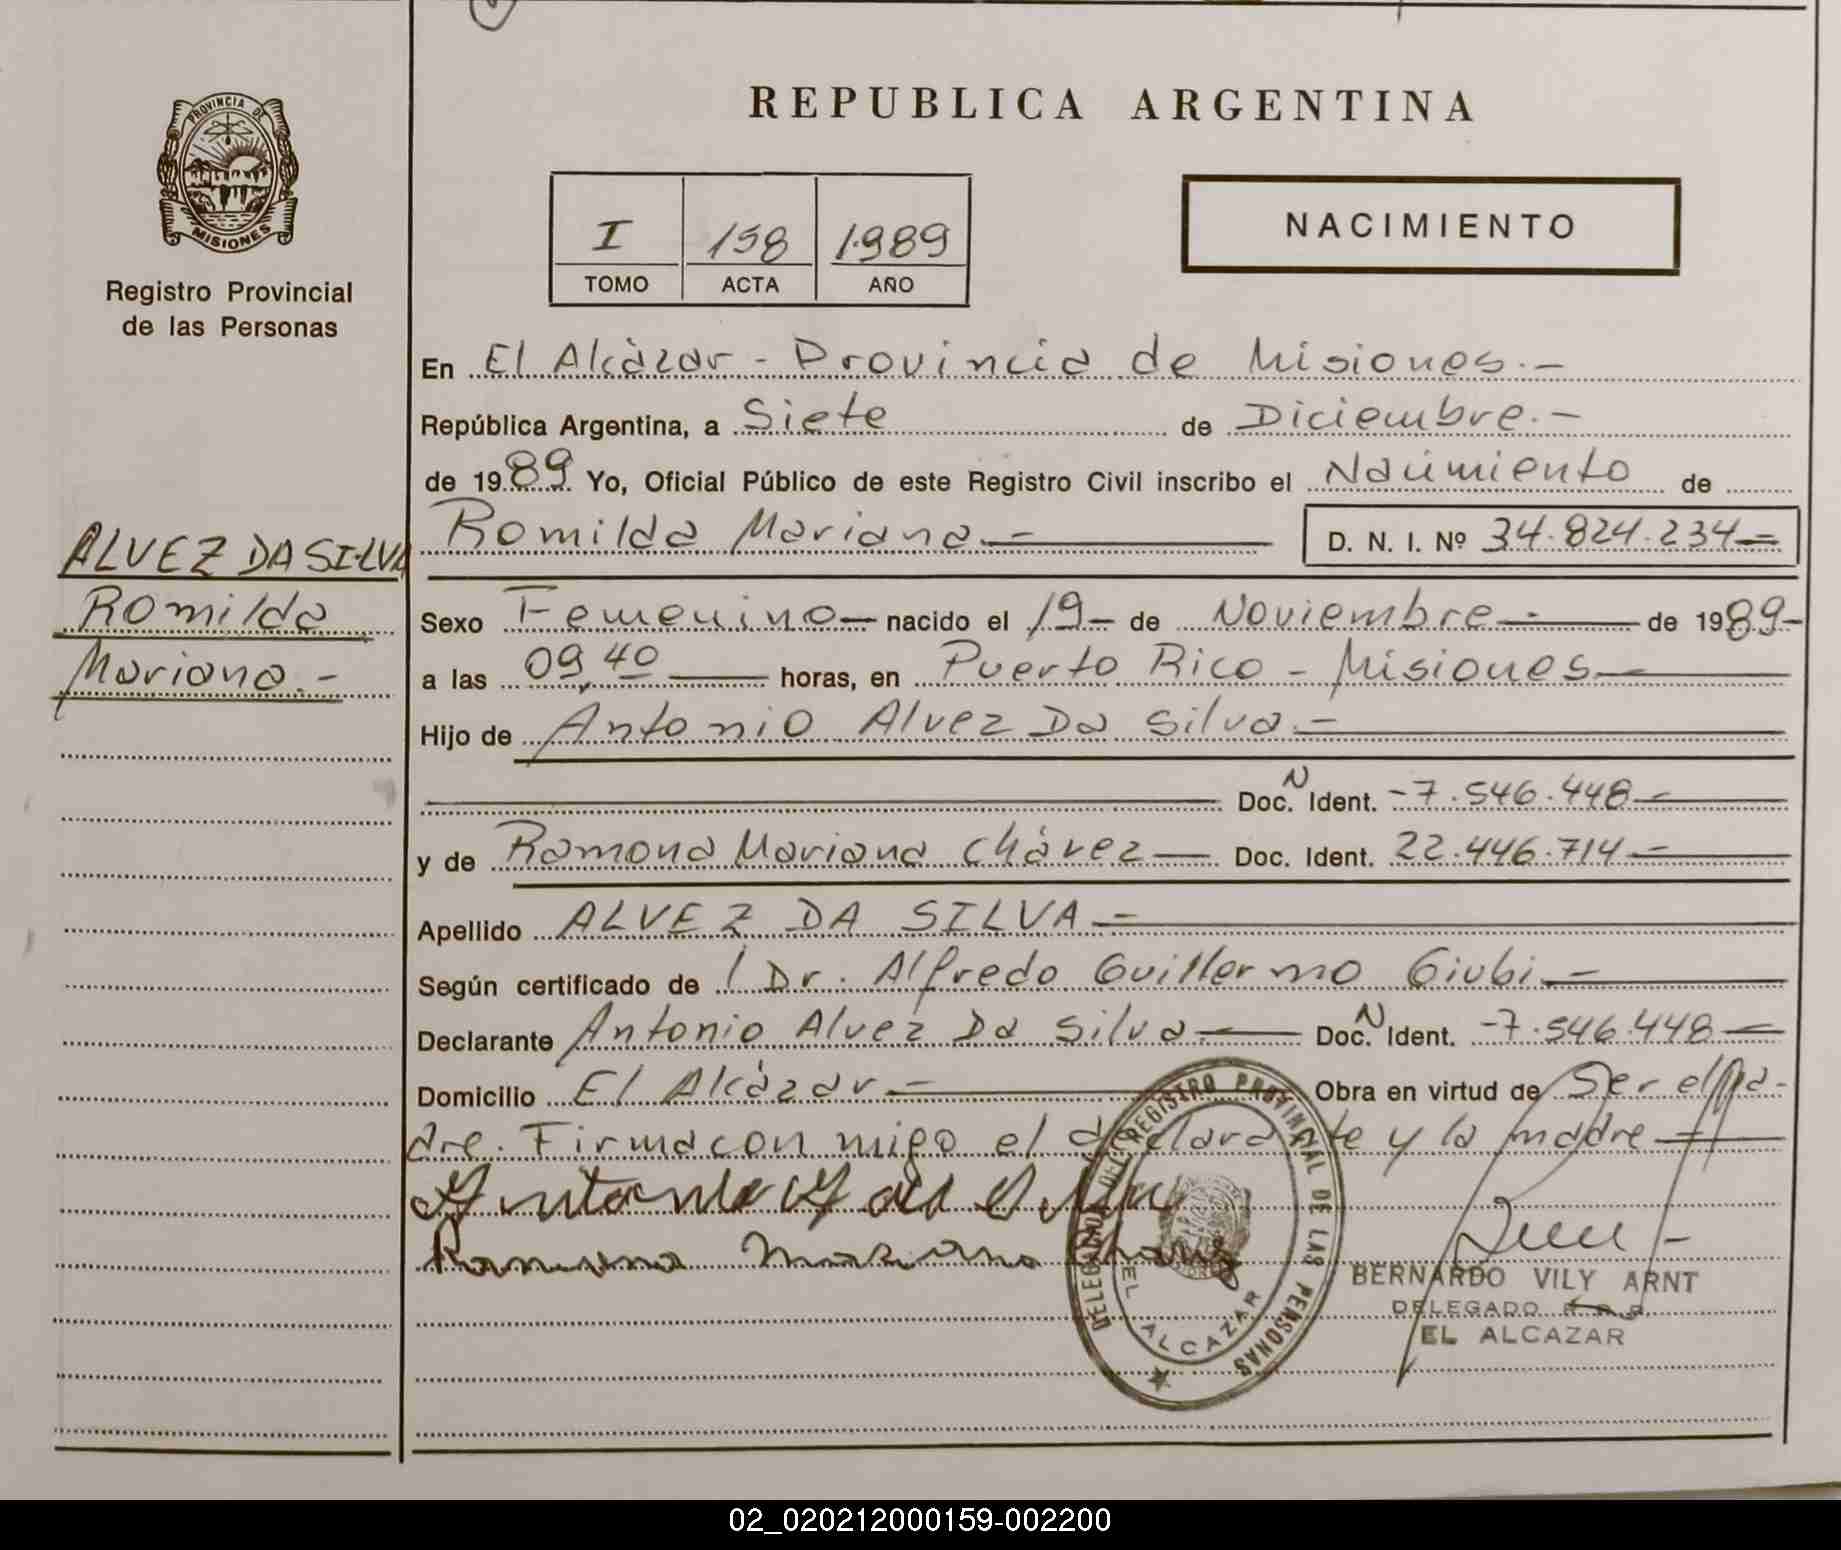 REPUBLICA ARGENTINA
PROVINCIA DE
MISIONES
Registro Provincial
de las Personas
I 158 1989
TOMO ACTA AÑO
NACIMIENTO
En El Alcázar - Provincia de Misiones.-
República Argentina, a Siete de Diciembre.-
de 1989 Yo, Oficial Público de este Registro Civil inscribo el Nacimiento de
ALVEZ DA SILVA
Romilda
Mariana.-
Romilda Mariana— D. N. I. Nº 34.824.234=
Sexo Femenino— nacido el 19- de Noviembre.— de 1989-
a las 09,40 — horas, en Puerto Rico - Misiones—
Hijo de Antonio Alvez Da Silva.-
Doc. N Ident. -7.546.448—
y de Ramona Mariana Chávez— Doc. Ident. 22.446.714—
Apellido ALVEZ DA SILVA.-
Según certificado de / Dr. Alfredo Guillermo Giubi.-
Declarante Antonio Alvez Da Silva— Doc. N Ident. -7.546.448—
Domicilio El Alcázar.- Obra en virtud de Ser el pa-
dre. Firma con migo el declarante y la madre—
Ramona Mariana Chavez
DELEGACION DEL REGISTRO PROVINCIAL DE LAS PERSONAS
EL ALCAZAR
BERNARDO VILY ARNT
DELEGADO
EL ALCAZAR
02_020212000159-002200